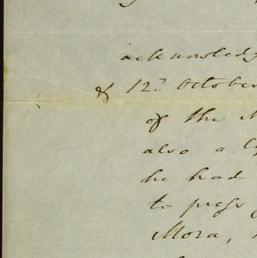 acknowledg
& 12th October
of the M
also a Co
he had
to press
Mora,